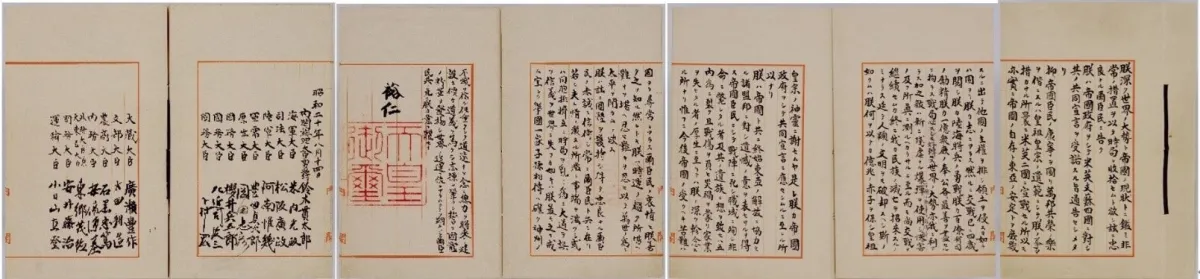 朕深ク世界ノ大勢ト帝國ノ現狀トニ鑑ミ非
常ノ措置ヲ以テ時局ヲ收拾セムト欲シ茲ニ忠
良ナル爾臣民ニ告ク
朕ハ帝國政府ヲシテ米英支蘇四國ニ對シ其
ノ共同宣言ヲ受諾スル旨通告セシメタ
リ
抑々帝國臣民ノ康寧ヲ圖リ萬邦共榮ノ樂
ヲ偕ニスルハ皇祖皇宗ノ遺範ニシテ朕ノ拳々
措カサル所曩ニ米英二國ニ宣戰セル所以モ
亦實ニ帝國ノ自存ト東亞ノ安定トヲ庶幾
スルニ出テ他國ノ主權ヲ排シ領土ヲ侵スカ如キ
ハ固ヨリ朕カ志ニアラス然ルニ交戰已ニ四歲
ヲ閲シ朕カ陸海將兵ノ勇戰朕カ百僚有司
ノ勵精朕カ一億衆庶ノ奉公各々最善ヲ盡セルニ
拘ラス戰局必スシモ好轉セス世界ノ大勢亦我ニ利
アラス加之敵ハ新ニ殘虐ナル爆彈ヲ使用シテ頻ニ無辜ヲ殺傷シ慘害ノ
及フ所眞ニ測ルヘカラサルニ至ル而モ尚交戰ヲ
繼續セムカ終ニ我カ民族ノ滅亡ヲ招來スルノミ
ナラス延テ人類ノ文明ヲモ破却スヘシ斯ノ
如クムハ朕何ヲ以テカ億兆ノ赤子ヲ保シ皇祖
皇宗ノ神靈ニ謝セムヤ是レ朕カ帝國
政府ヲシテ共同宣言ニ應セシムルニ至レル所
以ナリ
朕ハ帝國ト共ニ終始東亞ノ解放ニ協力セ
ル諸盟邦ニ對シ遺憾ノ意ヲ表セサルヲ得
ス帝國臣民ニシテ戰陣ニ死シ職域ニ殉シ非
命ニ斃レタル者及其ノ遺族ニ想ヲ致セハ五
内爲ニ裂ク且戰傷ヲ負ヒ災禍ヲ蒙リ家業
ヲ失ヒタル者ノ厚生ニ至リテハ朕ノ深ク軫念ス
ル所ナリ惟フニ今後帝國ノ受クヘキ苦難ハ
固ヨリ尋常ニアラス爾臣民ノ衷情モ朕善ク
之ヲ知ル然レトモ朕ハ時運ノ趨ク所堪ヘ
難キヲ堪ヘ忍ヒ難キヲ忍ヒ以テ萬世ノ爲ニ
太平ヲ開カムト欲ス
朕ハ茲ニ國體ヲ護持シ得テ忠良ナル爾臣
民ノ赤誠ニ信倚シ常ニ爾臣民ト共ニ在リ
若シ夫レ情ノ激スル所濫ニ事端ヲ滋クシ或
ハ同胞排擠互ニ時局ヲ亂リ爲ニ大道ヲ誤
リ信義ヲ世界ニ失フカ如キハ朕最モ之ヲ戒
ム宜シク擧國一家子孫相傳ヘ確ク神州ノ
不滅ヲ信シ任重クシテ道遠キヲ念ヒ總力ヲ將來ノ建
設ニ傾ケ道義ヲ篤クシ志操ヲ鞏クシ誓テ國體
ノ精華ヲ發揚シ世界ノ進運ニ後レサラムコトヲ期スヘシ爾臣
民其レ克ク朕カ意ヲ體セヨ
裕仁
天皇
御璽
昭和二十年八月十四日
内閣總理大臣男爵 鈴木貫太郎
海軍大臣 米内光政
司法大臣 松阪廣政
陸軍大臣 阿南惟幾
軍需大臣 豐田貞次郎
厚生大臣 岡田忠彦
國務大臣 櫻井兵五郎
國務大臣 左近司政三
國務大臣 下村宏
大藏大臣 廣瀬豐作
文部大臣 太田耕造
農商大臣 石黑忠篤
内務大臣 安倍源基
外務大臣兼大東亞大臣 東郷茂德
國務大臣 安井藤治
運輸大臣 小日山直登